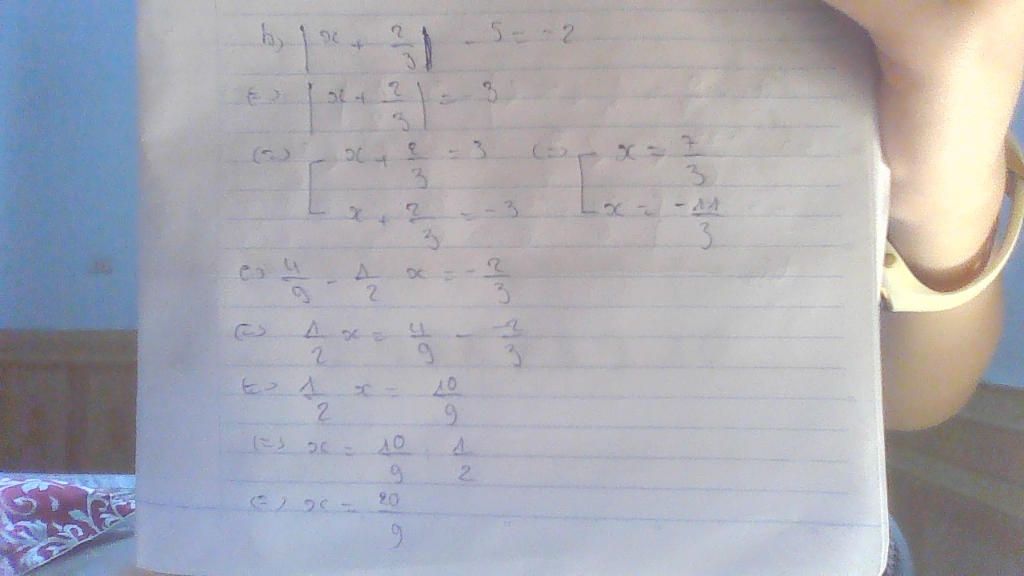 b, |x + 2/3| - 5 = -2
<=> |x + 2/3| = 3
<=> [ x + 2/3 = 3 <=> [ x = 7/3
x + 2/3 = -3 x = -11/3
c, 4/9 - 1/2 x = -2/3
<=> 1/2 x = 4/9 - -2/3
<=> 1/2 x = 10/9
<=> x = 10/9 : 1/2
<=> x = 20/9